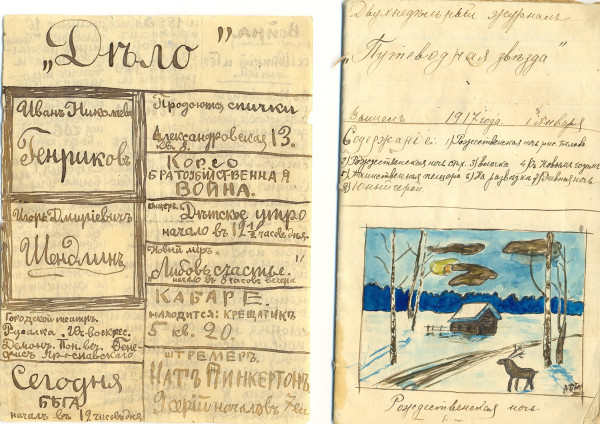 „Дѣло"
Иванъ Николаев
Генриковъ
Игорь Дмитріевичъ
Шендлинъ
Городской театръ.
Русалка „ въ воскрес.
Демонъ. Пон. веч. Бене-
фисъ Ярославскаго
Сегодня
БѢГА
началъ въ 12 часовъ дня
Продаются спички
Александровская 13.
кв. 8.
Корсо
БРАТОУБІЙСТВЕННАЯ
ВОЙНА.
Дѣтское утро
начало въ 12 1/2 часовъ дня.
Новый міръ.
„Любовь, счастье".
начало въ 6 часовъ вечера
КАБАРЕ.
находится: КРЕЩАТИКЪ
5 кв. 20.
ШТРЕМЕРЪ.
НАТЪ ПИНКЕРТОНЪ
9 серій началовъ 7
Двухнедѣльный журналъ
„Путеводная звѣзда"
1917 года. 1 января
Содержаніе: 1) Рождественская ночь рис. Бѣлова
2) Рождественская ночь стих. 3) елочка 4) Съ Новымъ годомъ
5) Таинственная пещера 6) На развѣдка 7) Дивная ночь
8) Юный герой.
Рождественская ночь